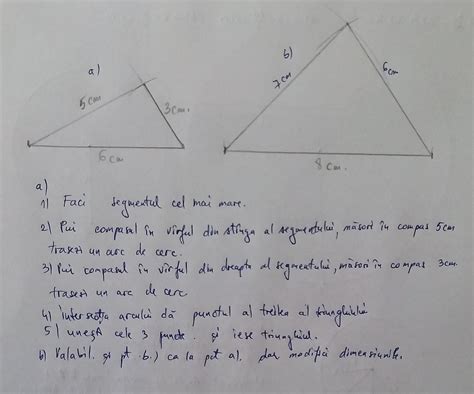 a)
b)
5 cm
3 cm.
6 cm
7 cm
6 cm
8 cm.
a)
1) Faci segmentul cel mai mare.
2) Pui compasul în vîrful din stînga al segmentului, măsori în compas 5cm
trasezi un arc de cerc.
3) Pui compasul în vîrful din dreapta al segmentului, măsori în compas 3cm
trasezi un arc de cerc
4) intersecția arcului dă punctul al treilea al triunghiului
5) unești cele 3 puncte. și iese triunghiul.
b) Valabil. și pt b.) ca la pct a). dar modifici dimensiunile.